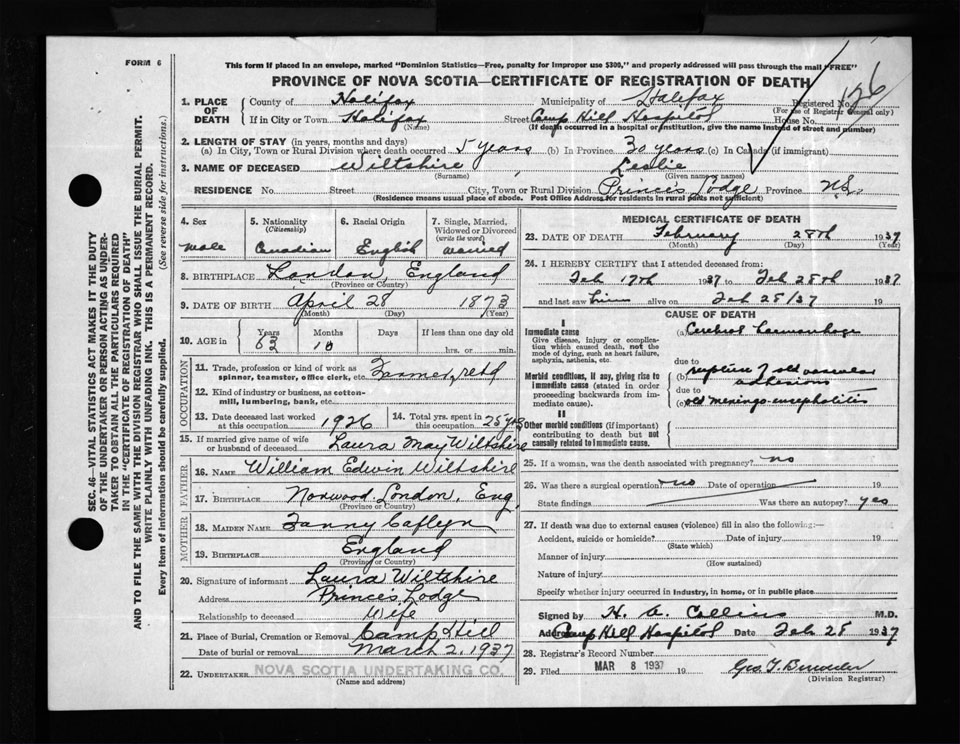 FORM 6
This form if placed in an envelope, marked "Dominion Statistics—Free, penalty for improper use $300," and properly addressed will pass through the mail "FREE"
PROVINCE OF NOVA SCOTIA—CERTIFICATE OF REGISTRATION OF DEATH
126
1. PLACE OF DEATH
County of Halifax Municipality of Halifax Registered No.
(For use of Registrar General only)
If in City or Town Halifax Street Camp Hill Hospital House No.
(Name) (If death occurred in a hospital or institution, give the name instead of street and number)
2. LENGTH OF STAY (in years, months and days)
(a) In City, Town or Rural Division where death occurred 5 years (b) In Province 30 years (c) In Canada (if immigrant)
3. NAME OF DECEASED Wiltshire, Leslie
(Surname) (Given name or names)
RESIDENCE No. Street City, Town or Rural Division Prince's Lodge Province N.S.
(Residence means usual place of abode. Post Office Address for residents in rural parts not sufficient)
4. Sex 5. Nationality (Citizenship) 6. Racial Origin 7. Single, Married, Widowed or Divorced (write the word)
male Canadian English married
8. BIRTHPLACE London, England
(Province or Country)
9. DATE OF BIRTH April 28 1873
(Month) (Day) (Year)
10. AGE in Years Months Days If less than one day old
63 10 hrs. or min.
OCCUPATION
11. Trade, profession or kind of work as spinner, teamster, office clerk, etc. Farmer, retd
12. Kind of industry or business, as cotton-mill, lumbering, bank, etc.
13. Date deceased last worked at this occupation 1926 14. Total yrs. spent in this occupation 25 yrs
15. If married give name of wife or husband of deceased Laura May Wiltshire
FATHER
16. NAME William Edwin Wiltshire
17. BIRTHPLACE Norwood, London, Eng.
(Province or Country)
MOTHER
18. MAIDEN NAME Fanny Caflyn
19. BIRTHPLACE England
(Province or Country)
20. Signature of informant Laura Wiltshire
Address Princes Lodge
Relationship to deceased Wife
21. Place of Burial, Cremation or Removal Camp Hill
Date of burial or removal March 2, 1937
22. UNDERTAKER NOVA SCOTIA UNDERTAKING CO.
(Name and address)
MEDICAL CERTIFICATE OF DEATH
23. DATE OF DEATH February 28th 1937
(Month) (Day) (Year)
24. I HEREBY CERTIFY that I attended deceased from:
Feb 17th 1937 to Feb 28th 1937
and last saw him alive on Feb 28/37 19
CAUSE OF DEATH
I
Immediate cause (a) Cerebral haemorrhage
Give disease, injury or complication which caused death, not the mode of dying, such as heart failure, asphyxia, asthenia, etc.
due to
Morbid conditions, if any, giving rise to immediate cause (stated in order proceeding backwards from immediate cause).
(b) rupture of old vascular
due to
(c) old meningo-encephalitis
II
Other morbid conditions (if important) contributing to death but not causally related to immediate cause.
25. If a woman, was the death associated with pregnancy? no
26. Was there a surgical operation? no Date of operation 19
State findings Was there an autopsy? yes
27. If death was due to external causes (violence) fill in also the following:—
Accident, suicide or homicide? Date of injury 19
(State which)
Manner of injury
(How sustained)
Nature of injury
Specify whether injury occurred in industry, in home, or in public place
Signed by H. A. Collins M.D.
Address Camp Hill Hospital Date Feb 28 1937
28. Registrar's Record Number
29. Filed MAR 8 1937 19
(Division Registrar)
SEC. 46—VITAL STATISTICS ACT MAKES IT THE DUTY
OF THE UNDERTAKER OR PERSON ACTING AS UNDER-
TAKER TO OBTAIN ALL THE PARTICULARS REQUIRED
IN THE "CERTIFICATE OF REGISTRATION OF DEATH"
AND TO FILE THE SAME WITH THE DIVISION REGISTRAR WHO SHALL ISSUE THE BURIAL PERMIT.
WRITE PLAINLY WITH UNFADING INK. THIS IS A PERMANENT RECORD.
Every item of information should be carefully supplied. (See reverse side for instructions.)